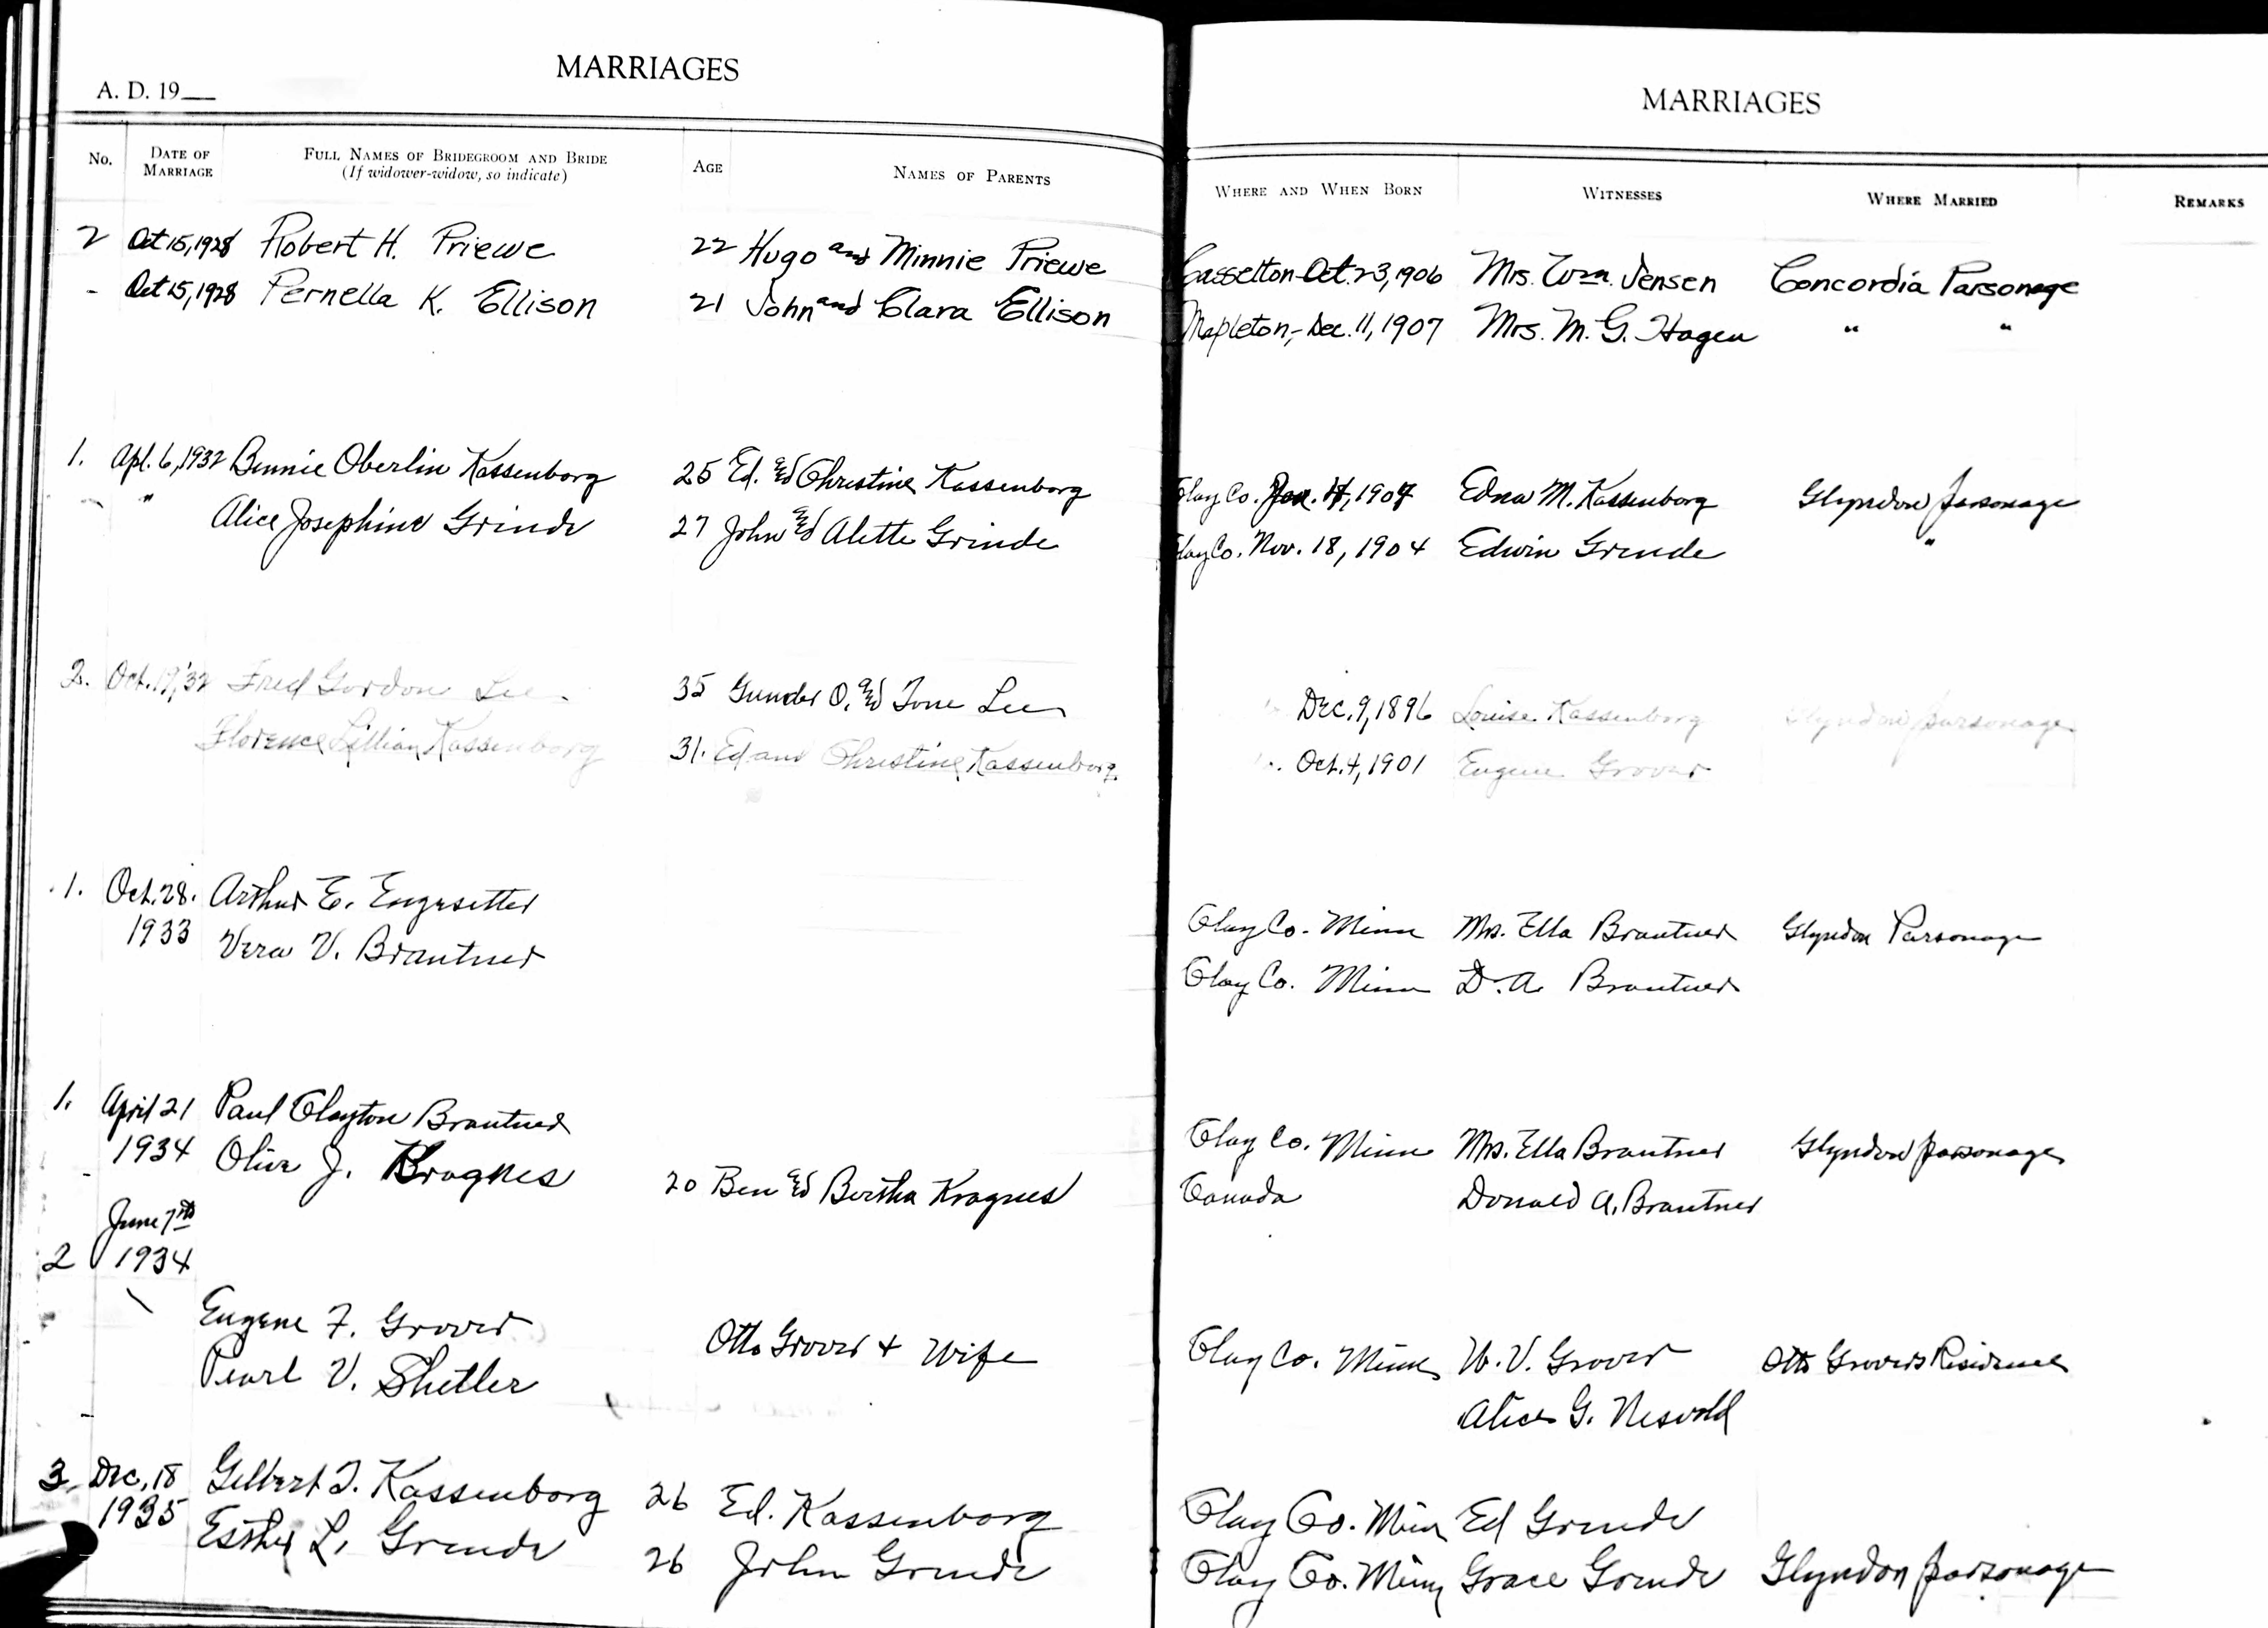 MARRIAGES
A. D. 19__
No. DATE OF MARRIAGE FULL NAMES OF BRIDEGROOM AND BRIDE (If widower-widow, so indicate) AGE NAMES OF PARENTS
2 Oct 15, 1928 Robert H. Priewe 22 Hugo and Minnie Priewe
Oct 15, 1928 Pernella K. Ellison 21 John and Clara Ellison
1. Apl. 6, 1932 Bennie Oberlin Kassenborg 25 Ed. and Christine Kassenborg
" Alice Josephine Grinde 27 John and Alette Grinde
2. Oct. 19, '32 Fred Gordon Lee 35 Gunder O. and Tone Lee
Florence Lillian Kassenborg 31. Ed and Christine Kassenborg
1. Oct. 28. Arthur E. Engesetter
1933 Vera V. Brantner
1. April 21 Paul Clayton Brantner
1934 Olive J. Kragnes 20 Ben and Bertha Kragnes
June 7th
2 1934
Eugene F. Grover Otto Grover + Wife
Pearl V. Shetler
3. Dec. 18 Gilbert T. Kassenborg 26 Ed. Kassenborg
1935 Esther L. Grinde 26 John Grinde
MARRIAGES
WHERE AND WHEN BORN WITNESSES WHERE MARRIED REMARKS
Casselton - Oct. 23, 1906 Mrs. Wm. Jensen Concordia Parsonage
Mapleton, - Dec. 11, 1907 Mrs. M. G. Hagen " "
Clay Co. Jan. 1907 Edna M. Kassenborg Glyndon parsonage
Clay Co. Nov. 18, 1904 Edwin Grinde "
Dec. 9, 1896 Louise Kassenborg Glyndon parsonage
Oct. 4, 1901 Eugene Grover
Clay Co. Minn Mrs. Ella Brantner Glyndon Parsonage
Clay Co. Minn D. A. Brantner
Clay Co. Minn Mrs. Ella Brantner Glyndon parsonage
Canada Donald A. Brantner
Clay Co. Minn W. V. Grover Otto Grovers Residence
Alice G. Nesvold
Clay Co. Minn Ed Grinde
Clay Co. Minn Grace Grinde Glyndon parsonage